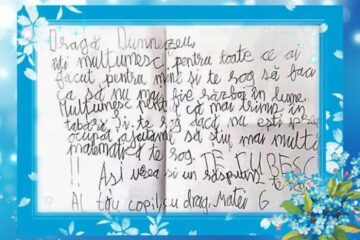 Dragă Dumnezeu,
îți mulțumesc pentru toate ce ai
făcut pentru mine și te rog să faci
ca să nu mai fie război în lume.
Mulțumesc pentru că mai trimis în
tabără și te rog dacă nu ești
ocupat ajutămă să știu mai multă
matematică te rog. TE IUBESC
!! Ași vrea și un răspuns te rog
Al tău copil cu drag, Matei G